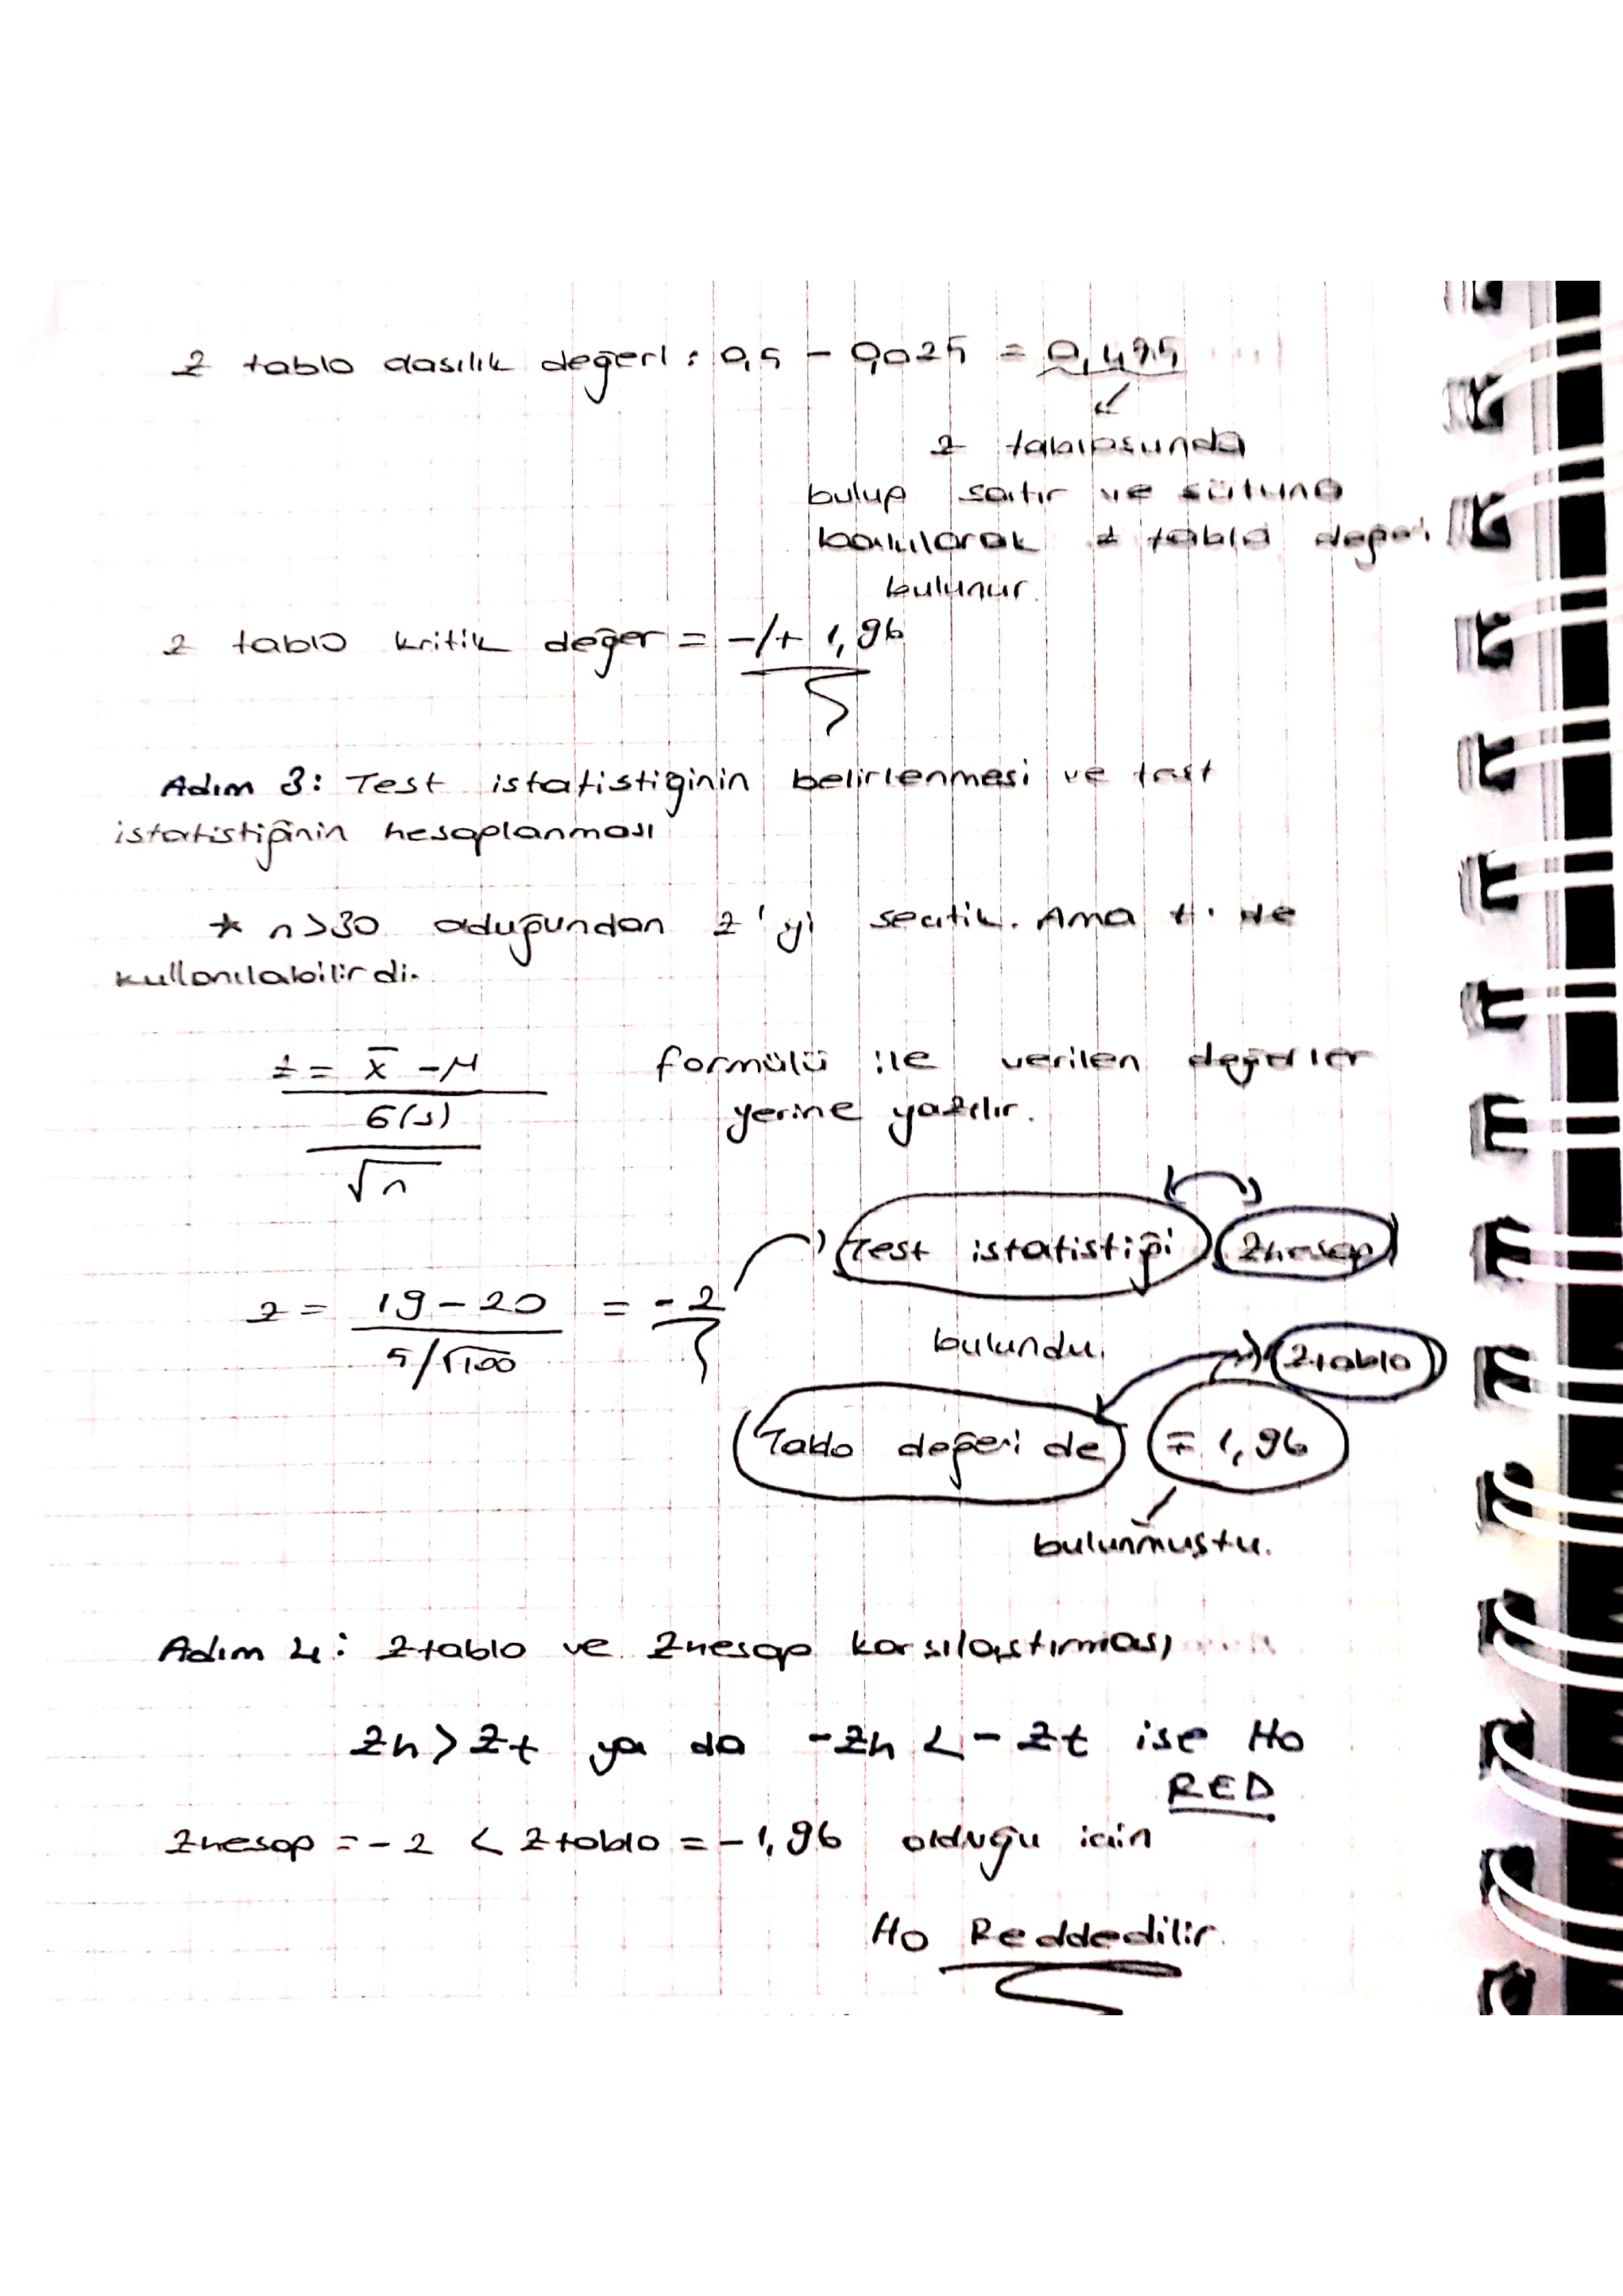 z tablo olasılık değeri : 0,5 - 0,025 = 0,495
z tablosunda
bulup satır ve sütuna
bakılarak z tablo değeri
bulunur.
z tablo kritik değer = -/+ 1,96
Adım 3: Test istatistiginin belirlenmesi ve test
istatistiğinin hesaplanması
* n>30 oduğundan z'yi sectik. Ama t' de
kullanılabilirdi.
z = x̄ - μ
6(s)
√n
formülü ile verilen değerler
yerine yazılır.
Test istatistiği zhesap
z = 19-20 / 5/√100 = -2
bulundu.
ztablo
Tablo değeri de ∓ 1,96
bulunmuştu.
Adım 4: ztablo ve zhesap karsılaştırması
zh > zt ya da -zh < - zt ise Ho
RED
zhesap = -2 < ztablo = -1,96 olduğu icin
Ho Reddedilir.